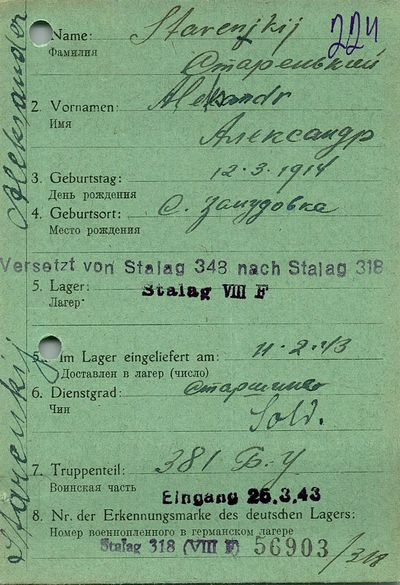 224
Name: Starenjkij
Фамилия Старенький
2. Vornamen: Aleksandr
Имя Александр
3. Geburtstag: 12.3.1914
День рождения
4. Geburtsort: с. Запудовка
Место рождения
Versetzt von Stalag 348 nach Stalag 318
5. Lager: Stalag VIII F
Лагер:
Im Lager eingeliefert am: 11.2.43
Доставлен в лагер (число)
6. Dienstgrad: старшина
Чин Sold.
7. Truppenteil: 381 Б.У
Воинская часть
Eingang 26.3.43
8. Nr. der Erkennungsmarke des deutschen Lagers:
Номер военнопленного в германском лагере
Stalag 318 (VIII F) 56903/318
Starenskij Aleksander